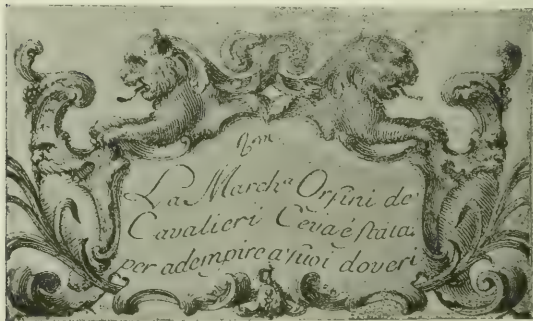 La March.ª Orsini de'
Cavalieri Ceva é stata
per adempire a' suoi doveri